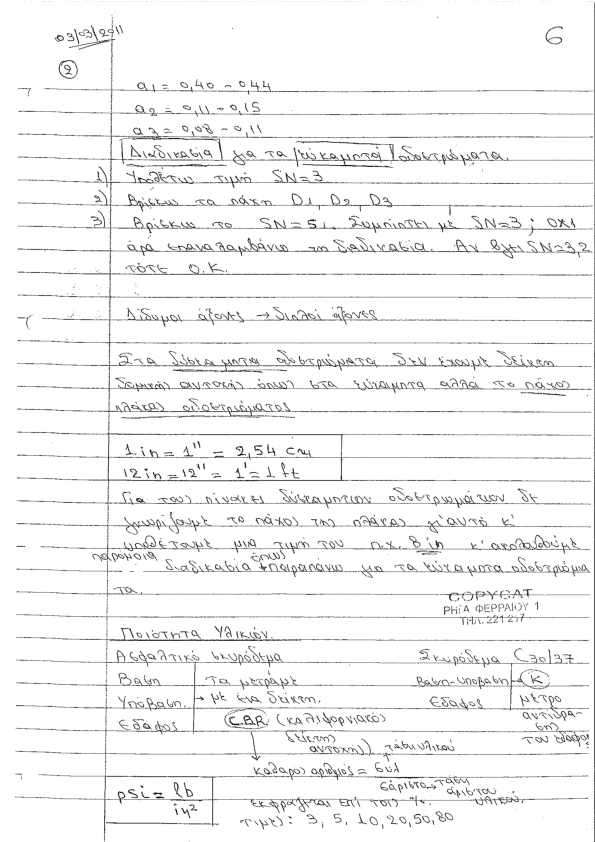 03/03/2011
6
2
a1 = 0,40 - 0,44
a2 = 0,11 - 0,15
a3 = 0,08 - 0,11
Διαδικασία για τα εύκαμπτα οδοστρώματα.
1) Υποθέτω τιμή SN=3
2) Βρίσκω τα πάχη D1, D2, D3
3) Βρίσκω το SN=51. Συμπίπτει με SN=3; ΟΧΙ
άρα επαναλαμβάνω τη διαδικασία. Αν βγει SN=3,2
τότε Ο.Κ.
Δίδυμοι άξονες → διπλοί άξονες
Στα δύσκαμπτα οδοστρώματα δεν έχουμε δείκτη
δομικής αντοχής όπως στα εύκαμπτα αλλά το πάχος
πλάκας οδοστρώματος
1 in = 1" = 2,54 cm
12 in = 12" = 1' = 1 ft
Για τους πίνακες δύσκαμπτων οδοστρωμάτων δε
γνωρίζουμε το πάχος της πλάκας γι'αυτό κ'
υποθέτουμε μια τιμή του π.χ. 8 in κ'ακολουθούμε
παρόμοια διαδικασία όπως παραπάνω για τα εύκαμπτα οδοστρώμα
τα.
COPYCAT
ΡΗΓΑ ΦΕΡΡΑΙΟΥ 1
ΤΗΛ. 221 217
Ποιότητα Υλικών.
Ασφαλτικό σκυρόδεμα
Σκυρόδεμα C30/37
Βάση
Υπόβαση.
Έδαφος
→ Τα μετράμε
με ένα δείκτη.
Βάση-υποβαση → K
Έδαφος
μέτρο
αντίδρα-
σης
του εδάφους
C.B.R (καλιφορνιακό)
δείκτης
αντοχής) τάση υλικού
καθαρός αριθμός = συλ
σάριστο → τάση
άριστου
υλικού.
psi = lb
in²
εκφράζεται επί τοις %.
τιμές: 3, 5, 10, 20, 50, 80